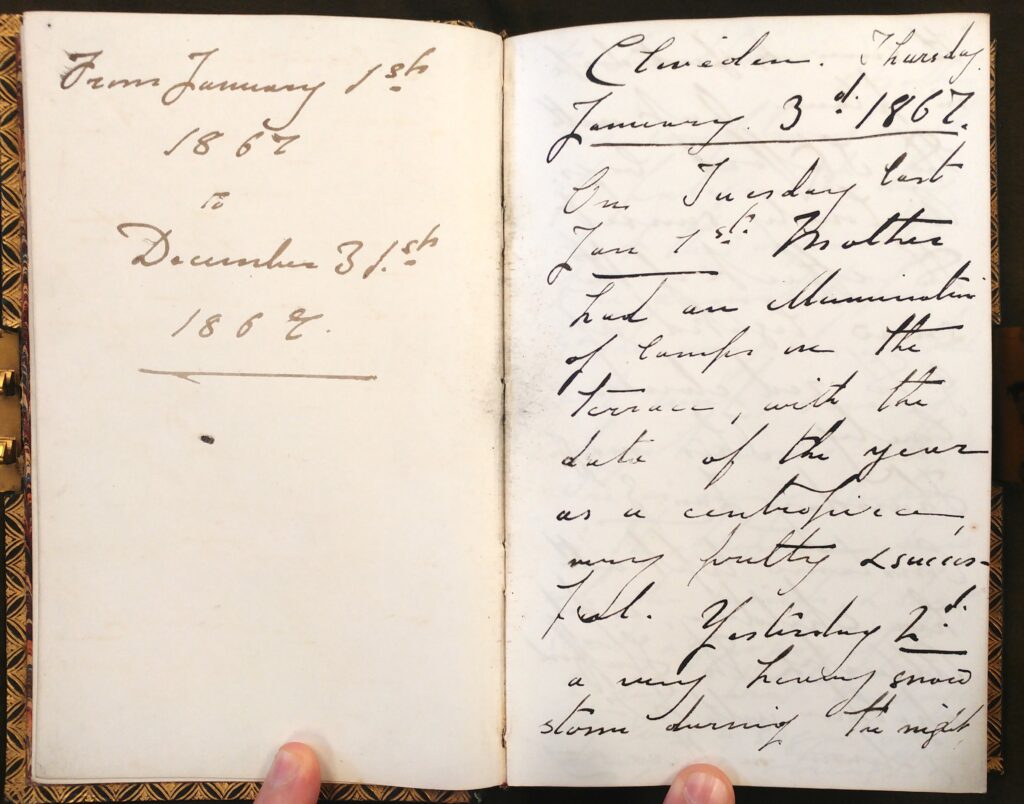 From January 1st
1867
to
December 31st
1867.
Cliveden. Thursday
January 3d. 1867.
On Tuesday last
Jan 1st. Mother
had an illumination
of lamps on the
terrace, with the
date of the year
as a centrepiece,
very pretty & succes-
ful. Yesterday 2d.
a very heavy snow
storm during the night